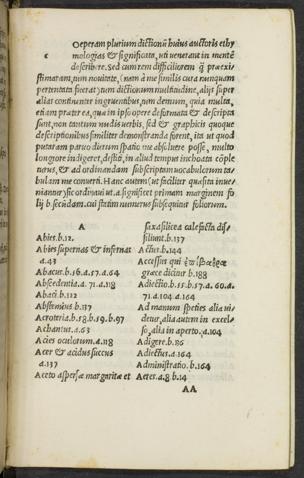 Oeperam plurium dictionũ huius auctoris ethy
c mologias & significata, uti uenerant in mentẽ
describere. Sed cum rem difficiliorem q̃ præexi
stimaram, tum nouitate, (nam à me similis cura nunquam
pertentata fuerat) tum dictionum multitudine, alijs super
alias continenter ingruentibus, tum demum, quia multa,
etiam præter ea, quæ in ipso opere deformata & descripta
sunt, non tantum nudis uerbis, sed & graphicis quoque
descriptionibus similiter demonstranda forent, ita ut quod
putaram paruo dierum spatio me absoluere posse, multo
longiore indigeret, destiti, in aliud tempus inchoata cõple
turus, & ad ordinandam subscriptam uocabulorum ta
bulam me conuerti. Hanc autem (ut faciliter quæsita inue
niantur) sic ordinaui ut .a. significet primam marginem fo
lij b secũdam. cui statim numerus subsequitur foliorum.
A
Abies. b. 12.
Abies supernas & infernat
a. 43
Abacus. b. 56. a. 57. a. 64
Abscedentia. a. 71. a. 118
Abaci. b. 112
Abstemius. b. 137
Acroteria. b. 58. b. 59. b. 97
Achantus. a. 63
Acies oculorum. a. 118
Acer & acidus succus
a. 137
Aceto aspersæ margaritæ et
saxa silicea calefacta dis
siliunt. b. 137
Actus. b. 144
Accessus qui
græce dicitur b. 188
Adiectio. b. 55. b. 57. a. 60. a.
71. a. 104 a. 164
Ad manum species alia ui
detur, alia autem in excel
so, alia in aperto. a. 104
Adigere. b. 116
Adiectus. a. 164
Administratio. b. 164
Aeter. a. 8. b. 14
AA